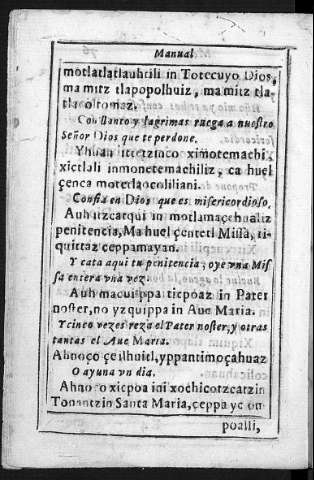 Manual
motlatlatlauhtili in Totecuyo Dios,
ma mitz tlapopolhuiz, ma mitz tla-
tlaçotomaz.
Con llanto y lagrimas ruega a nuestro
Señor Dios que te perdone.
Yhuan itetzinco ximotemachi,
xictlali inmonetemachiliz, ca huel
çenca motetlaocoliliani.
Confia en Dios que es misericordioso,
Auh izcatqui in motlamaçehualiz
penitencia, Ma huel çentetl Missa, ti-
quittaz ceppamayan.
Y cata aqui tu penitencia, oye vna Mis
sa entera vna vez.
Auh macuippa ticpoaz in Pater
noster, no yzquippa in Aue Maria.
Y cinco vezes reza el Pater noster, y otras
tantas el Aue Maria.
Ahnoço çeilhuitl, yppantimoçahuaz
O ayuna vn dia.
Ahnoço xicpoa ini xochicozcatzin
Tonantzin Santa Maria, ceppa yc om
poalli,